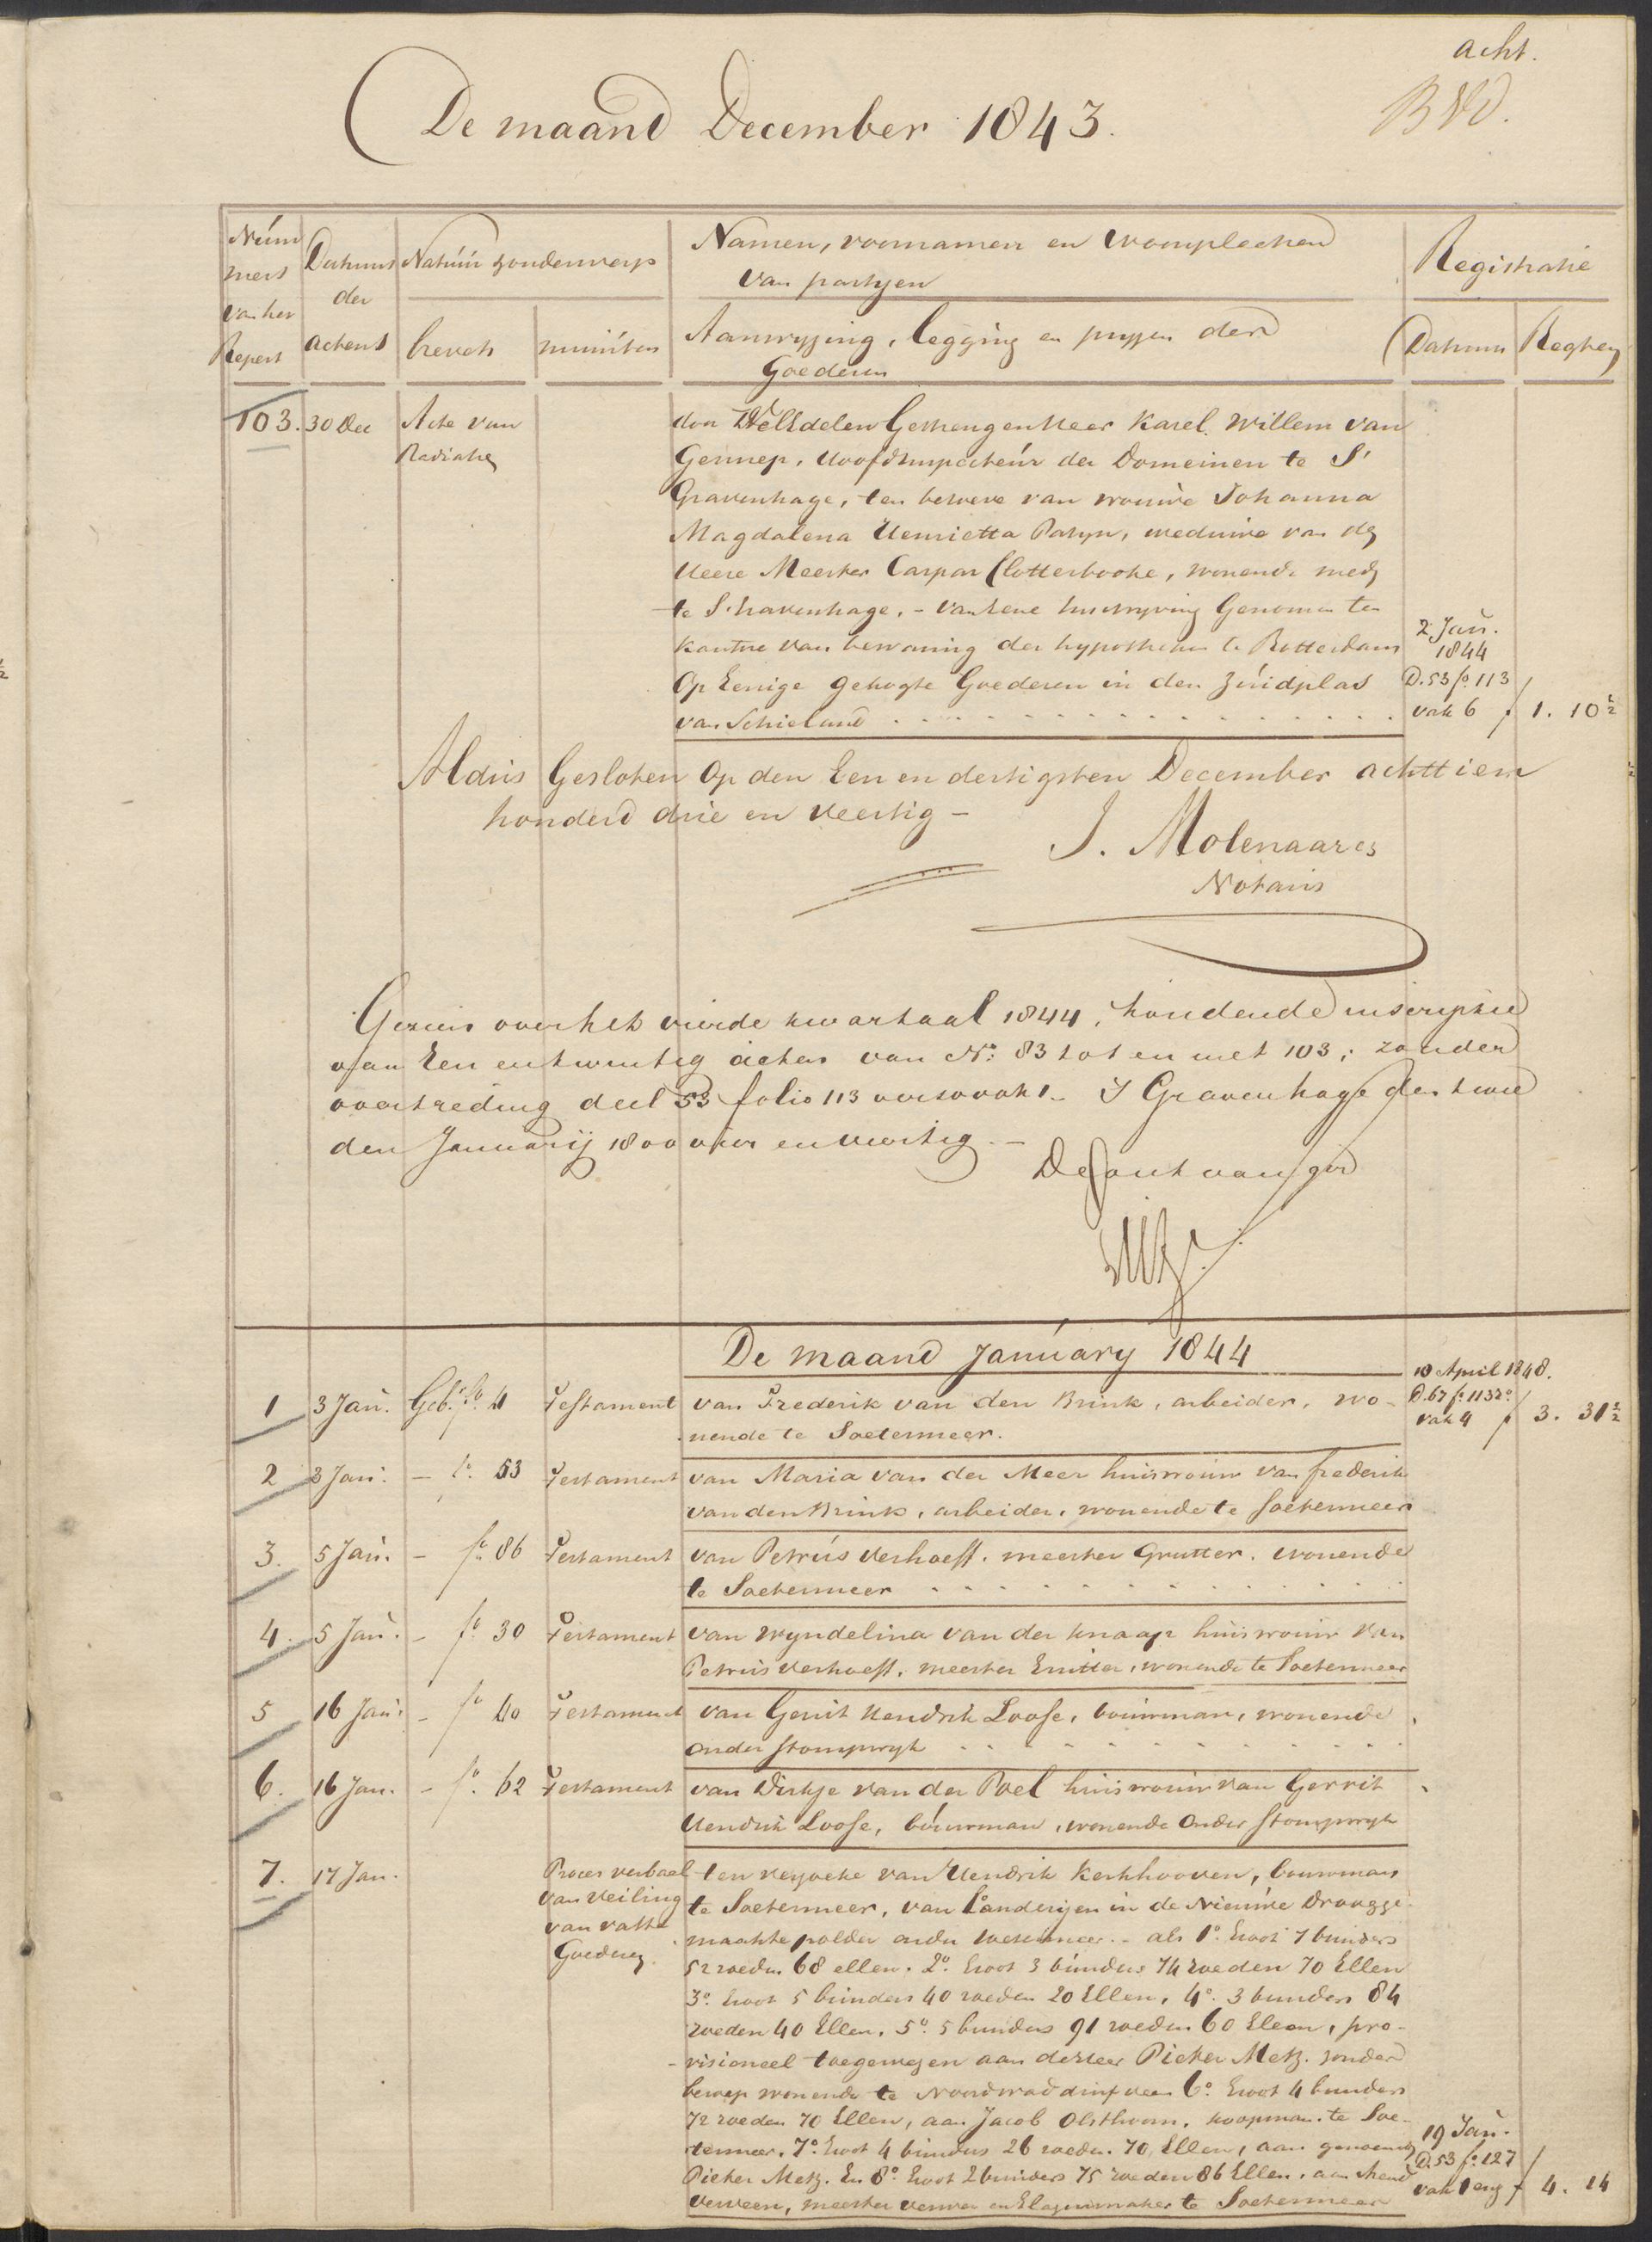 acht.
De maand December 1843.
BVD.
Núm
mers
van het
Repert
Datums
der
actens
Natúúr & onderwerp
brevets
minúten
Namen, voornamen en woonplaatsen
van partijen
Aanwyzing, legging en pryzen der
Goederen
Registratie
Datums
Regten
103. 30 Dec Acte van
Radiatie
door WelEdelen Gestrengen Heer Karel Willem van
Gennep, Hoofdinspecteúr der Domeinen te S'
Gravenhage, ten behoeve van vrouwe Johanna
Magdalena Henrietta Patyn, weduwe van den
Heere Meester Caspar Clotterbooke, wonende mede
te S'Gravenhage, - van eene Inschryving Genomen ten
kantore van bewaring der hypotheken te Rotterdam
Op Eenige gehogte Goederen in den Zúidplas
van Schieland
2 Jan.
1844
D. 53 fo. 113
vak 6 f 1. 10½
Aldús Gesloten Op den Een en dertigsten December achttien
honderd drie en veertig -
J. Molenaar
Notaris
Gezien over het vierde kwartaal 1844, houdende inscriptie
van Een en twintig acten van No. 83 tot en met 103; zonder
overtreding deel 53 folio 113 verso vak 1. S Gravenhage den twee
den Januarij 1800 vier en veertig. -
De Ontvanger
De maand Janúary 1844
1 3 Jan. Geb. fo. 4 Testament van Frederik van den Brink, arbeider, wo-
nende te Soetermeer.
10 April 1848.
D. 67 fo. 113 ro
vak 4 f 3. 31½
2 3 Jan. - fo. 53 Testament van Maria van der Meer huisvrouw van frederik
van den Brink, arbeider, wonende te Soetermeer
3. 5 Jan. - fo. 86 Testament van Petrús Verhoeff. meester Grutter. wonende
te Soetermeer
4. 5 Jan. - fo. 30 Testament van Wyndelina van der Knaap huisvrouw van
Petrus Verhoeff, meester Grutter, wonende te Soetermeer
5 16 Jan. - fo 40 Testament van Gerrit Hendrik Loose, boúwman, wonende
onder Stompwyk
6. 16 Jan. - fo. 62 Testament van Dirkje van der Poel huisvrouw van Gerrit
Hendrik Loose, boúwman, wonende onder Stompwyk
7. 17 Jan. Proces verbaal
van veiling
van vaste
Goederen
ten verzoeke van Hendrik Kerkhooven, bouwman
te Soetermeer, van Landerijen in de Nieuwe Droogge-
maakte polder onder Soetermeer. - als 1o. Groot 7 bunders
52 roeden 68 ellen. 2o. Groot 3 búnders 74 roeden 70 Ellen
3o. Groot 5 búnders 40 roeden 20 Ellen, 4o. 3 bunders 84
roeden 40 Ellen, 5o. 5 bunders 91 roeden 60 Ellen, pro-
visioneel toegewezen aan de Heer Pieter Metz. zonder
beroep wonende te Noordwaddinxveen 6o. Groot 4 bunders
72 roeden 70 Ellen, aan Jacob Olsthoorn, koopman te Soe-
termeer, 7o. Groot 4 búnders 26 roeden 70 Ellen, aan genoemde
Pieter Metz. En 8o. Groot 2 bunders 75 roeden 86 Ellen, aan
Verveen, meester verwer en Glazenmaker te Soetermeer
19 Jan.
D. 53 fo. 127
vak 1 enz f 4. 14